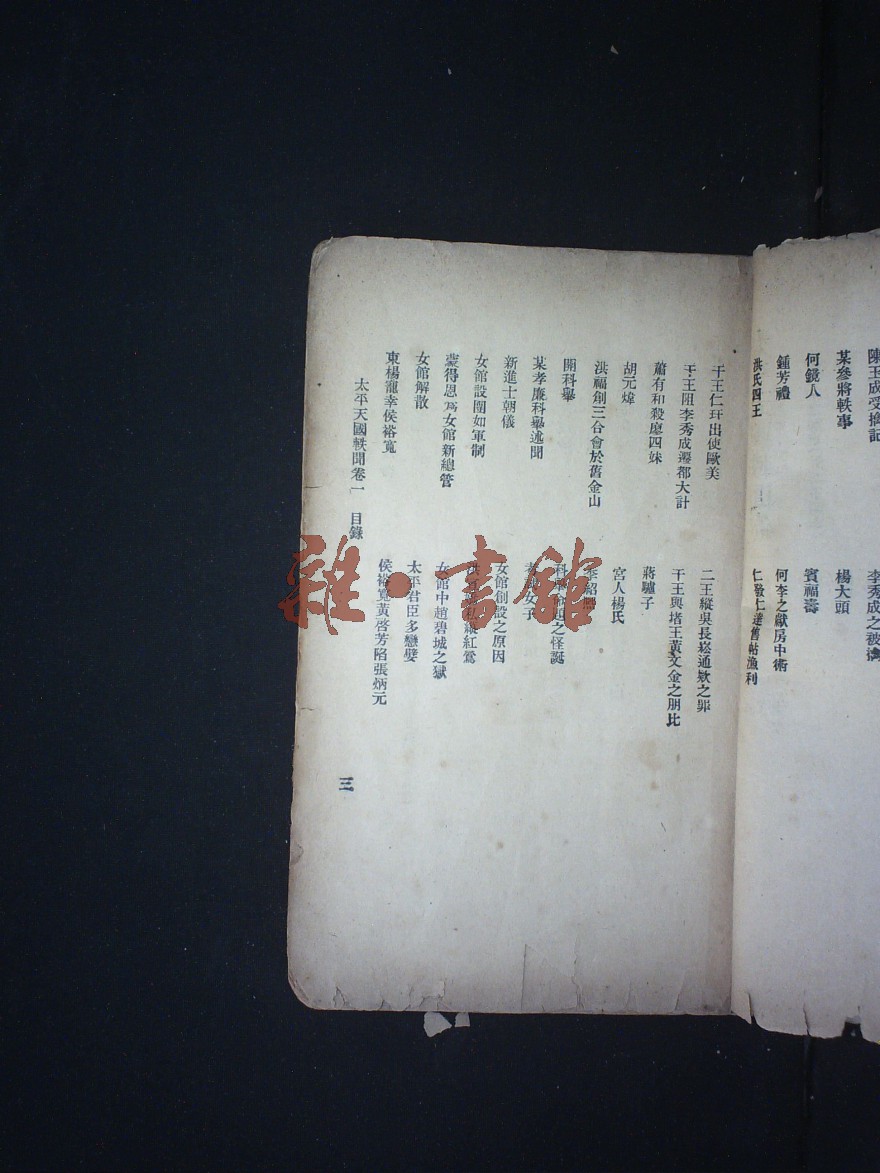 陳玉成受擒記
李秀成之被擒
某參將軼事
楊大頭
何鏡人
賓福壽
鍾芳禮
何李之獻房中術
洪氏四王
仁發仁達舊帖漁利
干王仁玕出使歐美
二王縱吳長崧通欵之罪
干王阻李秀成遷都大計
干王與堵王黃文金之朋比
蕭有和殺廖四妹
蔣驢子
胡元煒
宮人楊氏
洪福創三合會於舊金山
李紹熙
開科舉
科 之怪誕
某孝廉科舉述聞
女子
新進士朝儀
女館創設之原因
女館設團如軍制
縱紅鴛
蒙得恩爲女館新總管
女館中趙碧城之獄
女館解散
太平君臣多戀嬖
東楊寵幸侯裕寬
侯裕寬黃啓芳陷張炳元
太平天國軼聞卷一 目錄
三
雜·書館